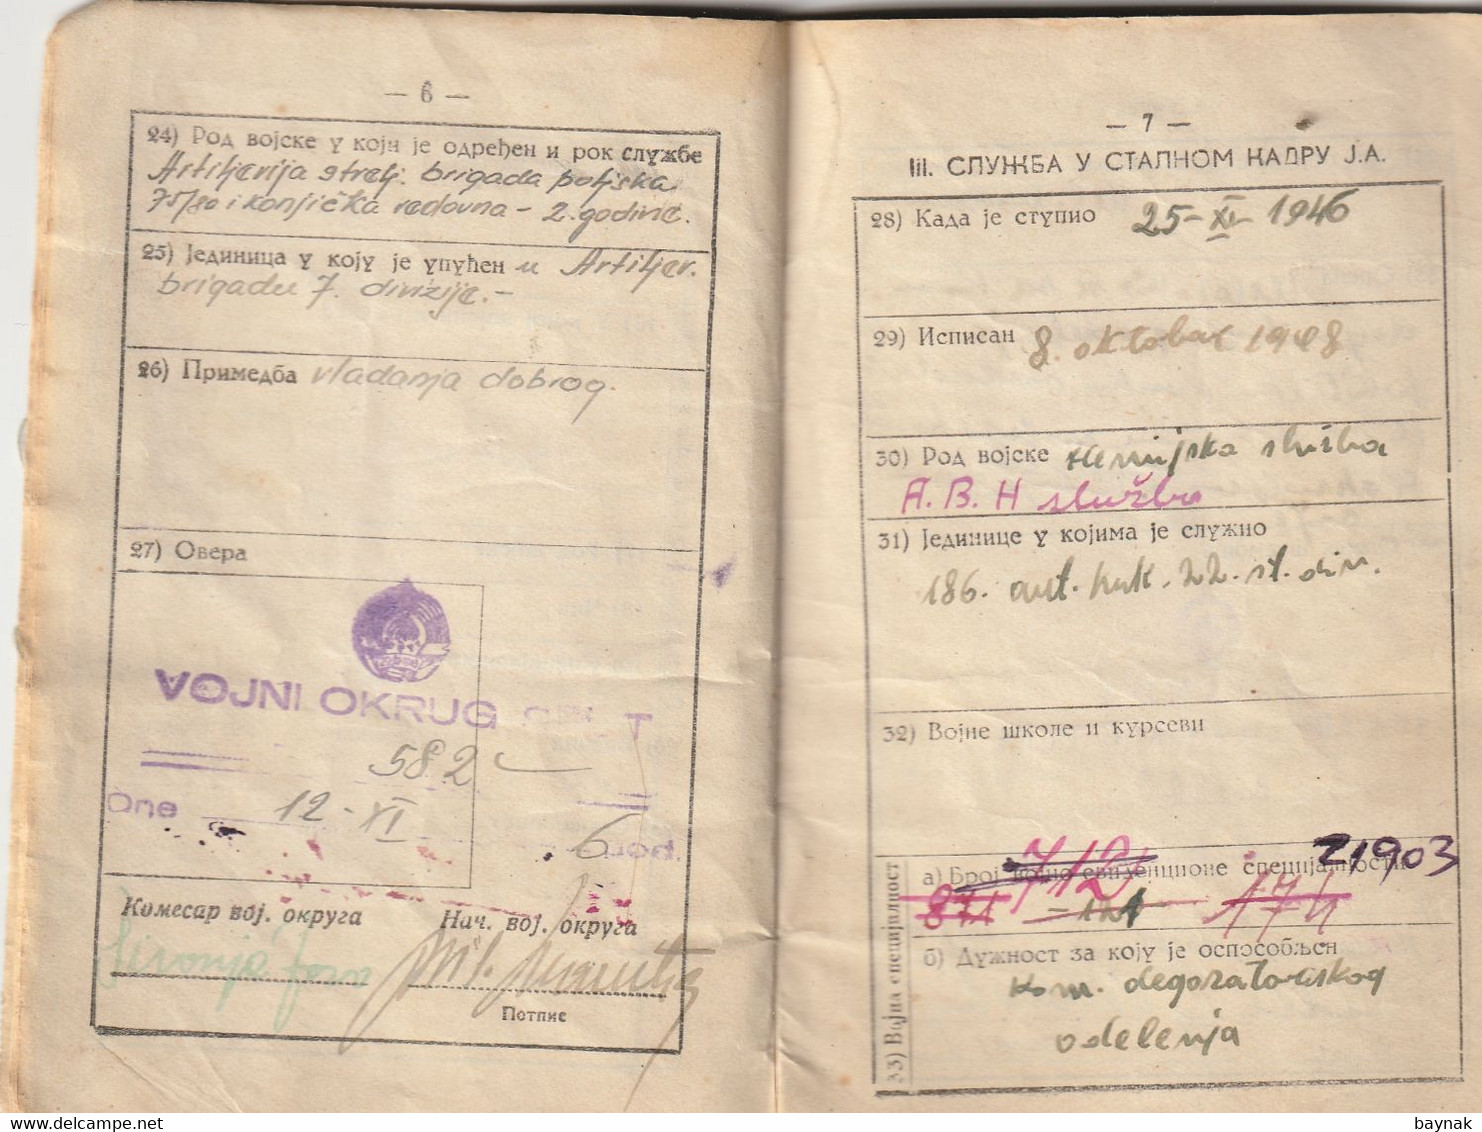 — 6 —
24) Род војске у који је одређен и рок службе
Artiljerija strelj. brigada poljska
75/80 i konjička redovna - 2. godine.
25) Јединица у коју је упућен u Artiljer.
brigadu 7. divizije.-
26) Примедба vladanja dobrog.
27) Овера
VOJNI OKRUG
582
One 12-XI
6
Комесар вој. округа
Нач. вој. округа
Потпис
— 7 —
III. СЛУЖБА У СТАЛНОМ КАДРУ Ј.А.
28) Када је ступио 25-XI-1946
29) Исписан 8. oktobar 1948
30) Род војске Hemijska služba
A.B.H služba
31) Јединице у којима је служио
186. aut. puk. 22. st. div.
32) Војне школе и курсеви
33) Војна специјалност
712 21903
а) Број војно евиденционе специјалности
871 - 121 174
б) Дужност за коју је оспособљен
Kom. degozatorskog
odelenja
baynak